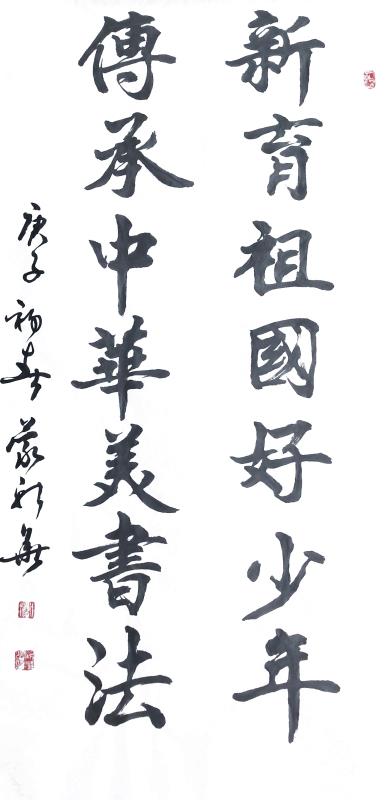 新育祖國好少年
傳承中華美書法
庚子初春蒙新華